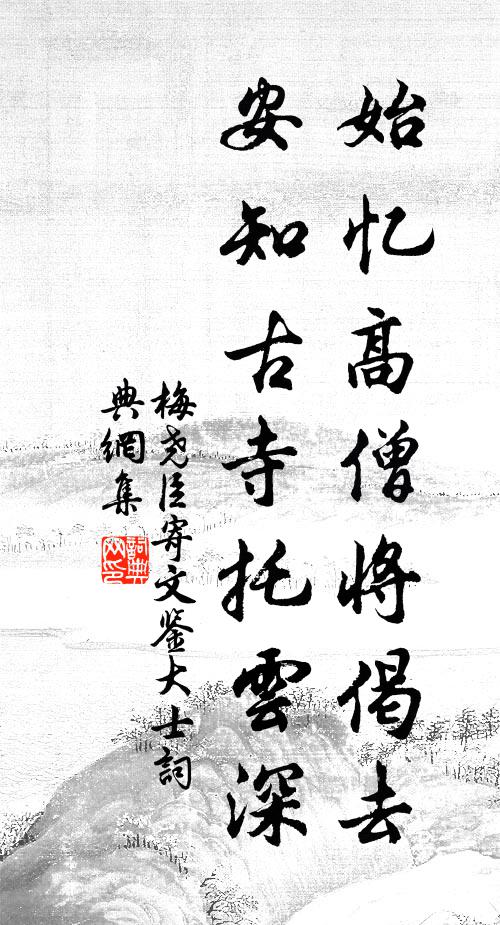 始忆高僧将偈去
安知古寺托雲深
梅尧臣寄文鉴大士詞
典網集
詞典网印